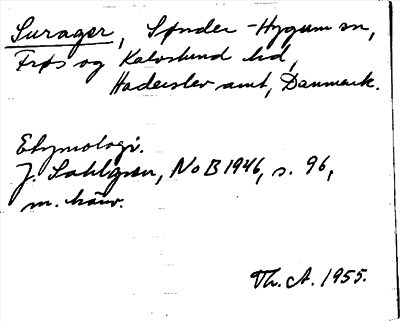 Surager, Sønder-Hygum sn,
Frøs og Kalvslund hd,
Haderslev amt, Danmark.
Etymologi.
J. Sahlgren, NoB 1946, s. 96,
m. hänv.
Th. A. 1955.